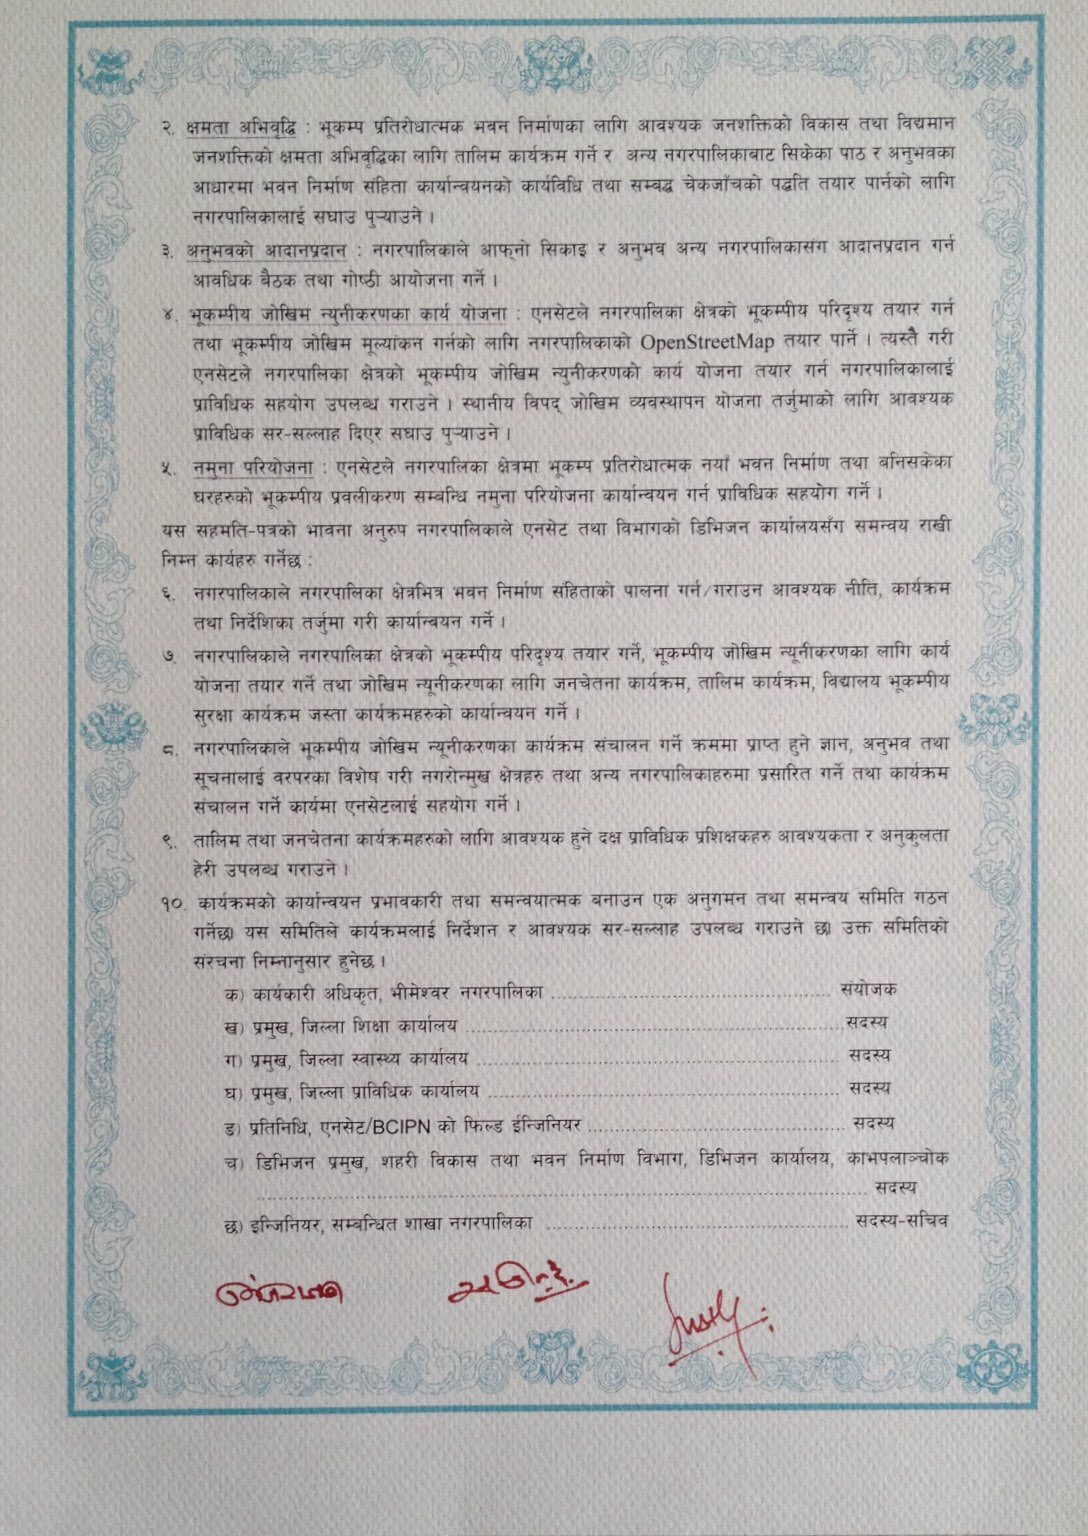 २. क्षमता अभिवृद्धि : भूकम्प प्रतिरोधात्मक भवन निर्माणका लागि आवश्यक जनशक्तिको विकास तथा विद्यमान
जनशक्तिको क्षमता अभिवृद्धिका लागि तालिम कार्यक्रम गर्ने र अन्य नगरपालिकाबाट सिकेका पाठ र अनुभवका
आधारमा भवन निर्माण संहिता कार्यान्वयनको कार्यविधि तथा सम्बद्ध चेकजाँचको पद्धति तयार पार्नको लागि
नगरपालिकालाई सघाउ पुऱ्याउने ।
३. अनुभवको आदानप्रदान : नगरपालिकाले आफ्नो सिकाइ र अनुभव अन्य नगरपालिकासंग आदानप्रदान गर्न
आवधिक बैठक तथा गोष्ठी आयोजना गर्ने ।
४. भूकम्पीय जोखिम न्युनीकरणका कार्य योजना : एनसेटले नगरपालिका क्षेत्रको भूकम्पीय परिदृश्य तयार गर्न
तथा भूकम्पीय जोखिम मूल्यांकन गर्नको लागि नगरपालिकाको OpenStreetMap तयार पार्ने । त्यस्तै गरी
एनसेटले नगरपालिका क्षेत्रको भूकम्पीय जोखिम न्युनीकरणको कार्य योजना तयार गर्न नगरपालिकालाई
प्राविधिक सहयोग उपलब्ध गराउने । स्थानीय विपद् जोखिम व्यवस्थापन योजना तर्जुमाको लागि आवश्यक
प्राविधिक सर-सल्लाह दिएर सघाउ पुऱ्याउने ।
५. नमुना परियोजना : एनसेटले नगरपालिका क्षेत्रमा भूकम्प प्रतिरोधात्मक नयाँ भवन निर्माण तथा बनिसकेका
घरहरुको भूकम्पीय प्रवलीकरण सम्बन्धि नमुना परियोजना कार्यान्वयन गर्न प्राविधिक सहयोग गर्ने ।
यस सहमति-पत्रको भावना अनुरुप नगरपालिकाले एनसेट तथा विभागको डिभिजन कार्यालयसँग समन्वय राखी
निम्न कार्यहरु गर्नेछ :
६. नगरपालिकाले नगरपालिका क्षेत्रभित्र भवन निर्माण संहिताको पालना गर्न/गराउन आवश्यक नीति, कार्यक्रम
तथा निर्देशिका तर्जुमा गरी कार्यान्वयन गर्ने ।
७. नगरपालिकाले नगरपालिका क्षेत्रको भूकम्पीय परिदृश्य तयार गर्ने, भूकम्पीय जोखिम न्यूनीकरणका लागि कार्य
योजना तयार गर्ने तथा जोखिम न्यूनीकरणका लागि जनचेतना कार्यक्रम, तालिम कार्यक्रम, विद्यालय भूकम्पीय
सुरक्षा कार्यक्रम जस्ता कार्यक्रमहरुको कार्यान्वयन गर्ने ।
८. नगरपालिकाले भूकम्पीय जोखिम न्यूनीकरणका कार्यक्रम संचालन गर्ने क्रममा प्राप्त हुने ज्ञान, अनुभव तथा
सूचनालाई वरपरका विशेष गरी नगरोन्मुख क्षेत्रहरु तथा अन्य नगरपालिकाहरुमा प्रसारित गर्ने तथा कार्यक्रम
संचालन गर्ने कार्यमा एनसेटलाई सहयोग गर्ने ।
९. तालिम तथा जनचेतना कार्यक्रमहरुको लागि आवश्यक हुने दक्ष प्राविधिक प्रशिक्षकहरु आवश्यकता र अनुकुलता
हेरी उपलब्ध गराउने ।
१०. कार्यक्रमको कार्यान्वयन प्रभावकारी तथा समन्वयात्मक बनाउन एक अनुगमन तथा समन्वय समिति गठन
गर्नेछ। यस समितिले कार्यक्रमलाई निर्देशन र आवश्यक सर-सल्लाह उपलब्ध गराउने छ। उक्त समितिको
संरचना निम्नानुसार हुनेछ ।
क) कार्यकारी अधिकृत, भीमेश्वर नगरपालिका .......... संयोजक
ख) प्रमुख, जिल्ला शिक्षा कार्यालय .......... सदस्य
ग) प्रमुख, जिल्ला स्वास्थ्य कार्यालय .......... सदस्य
घ) प्रमुख, जिल्ला प्राविधिक कार्यालय .......... सदस्य
ङ) प्रतिनिधि, एनसेट/BCIPN को फिल्ड ईन्जिनियर .......... सदस्य
च) डिभिजन प्रमुख, शहरी विकास तथा भवन निर्माण विभाग, डिभिजन कार्यालय, काभपलाञ्चोक
.......... सदस्य
छ) इन्जिनियर, सम्बन्धित शाखा नगरपालिका .......... सदस्य-सचिव